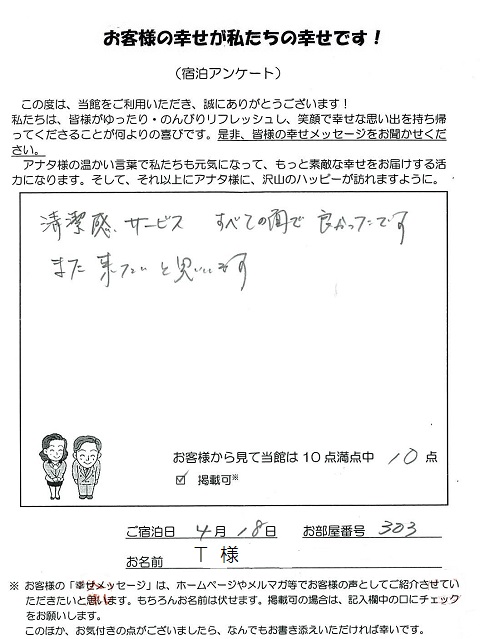 お客様の幸せが私たちの幸せです！
（宿泊アンケート）
この度は、当館をご利用いただき、誠にありがとうございます！
私たちは、皆様がゆったり・のんびりリフレッシュし、笑顔で幸せな思い出を持ち帰
ってくださることが何よりの喜びです。是非、皆様の幸せメッセージをお聞かせくだ
さい。
アナタ様の温かい言葉で私たちも元気になって、もっと素敵な幸せをお届けする活
力になります。そして、それ以上にアナタ様に、沢山のハッピーが訪れますように。
清潔感、サービス すべての面で 良かったです
また 来たいと思います
お客様から見て当館は10点満点中 10 点
☑ 掲載可※
ご宿泊日 4月 18日 お部屋番号 303
お名前 T 様
※ お客様の「幸せメッセージ」は、ホームページやメルマガ等でお客様の声としてご紹介させてい
ただきたいと思います。もちろんお名前は伏せます。掲載可の場合は、記入欄中の口にチェック
をお願いします。
このほか、お気付きの点がございましたら、なんでもお書き添えいただければ幸いです。